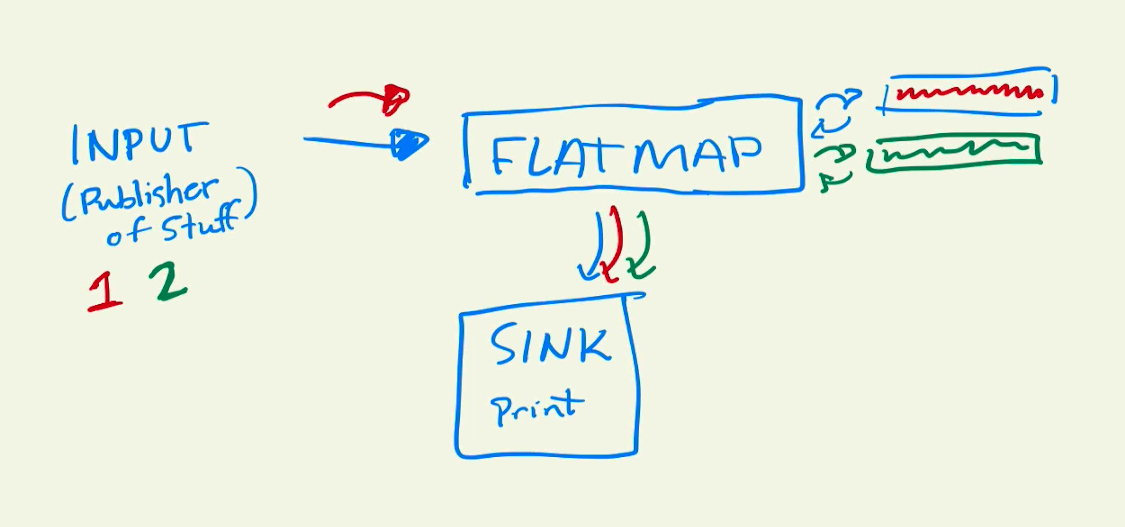 INPUT
(Publisher
of Stuff)
1 2
FLATMAP
SINK
Print